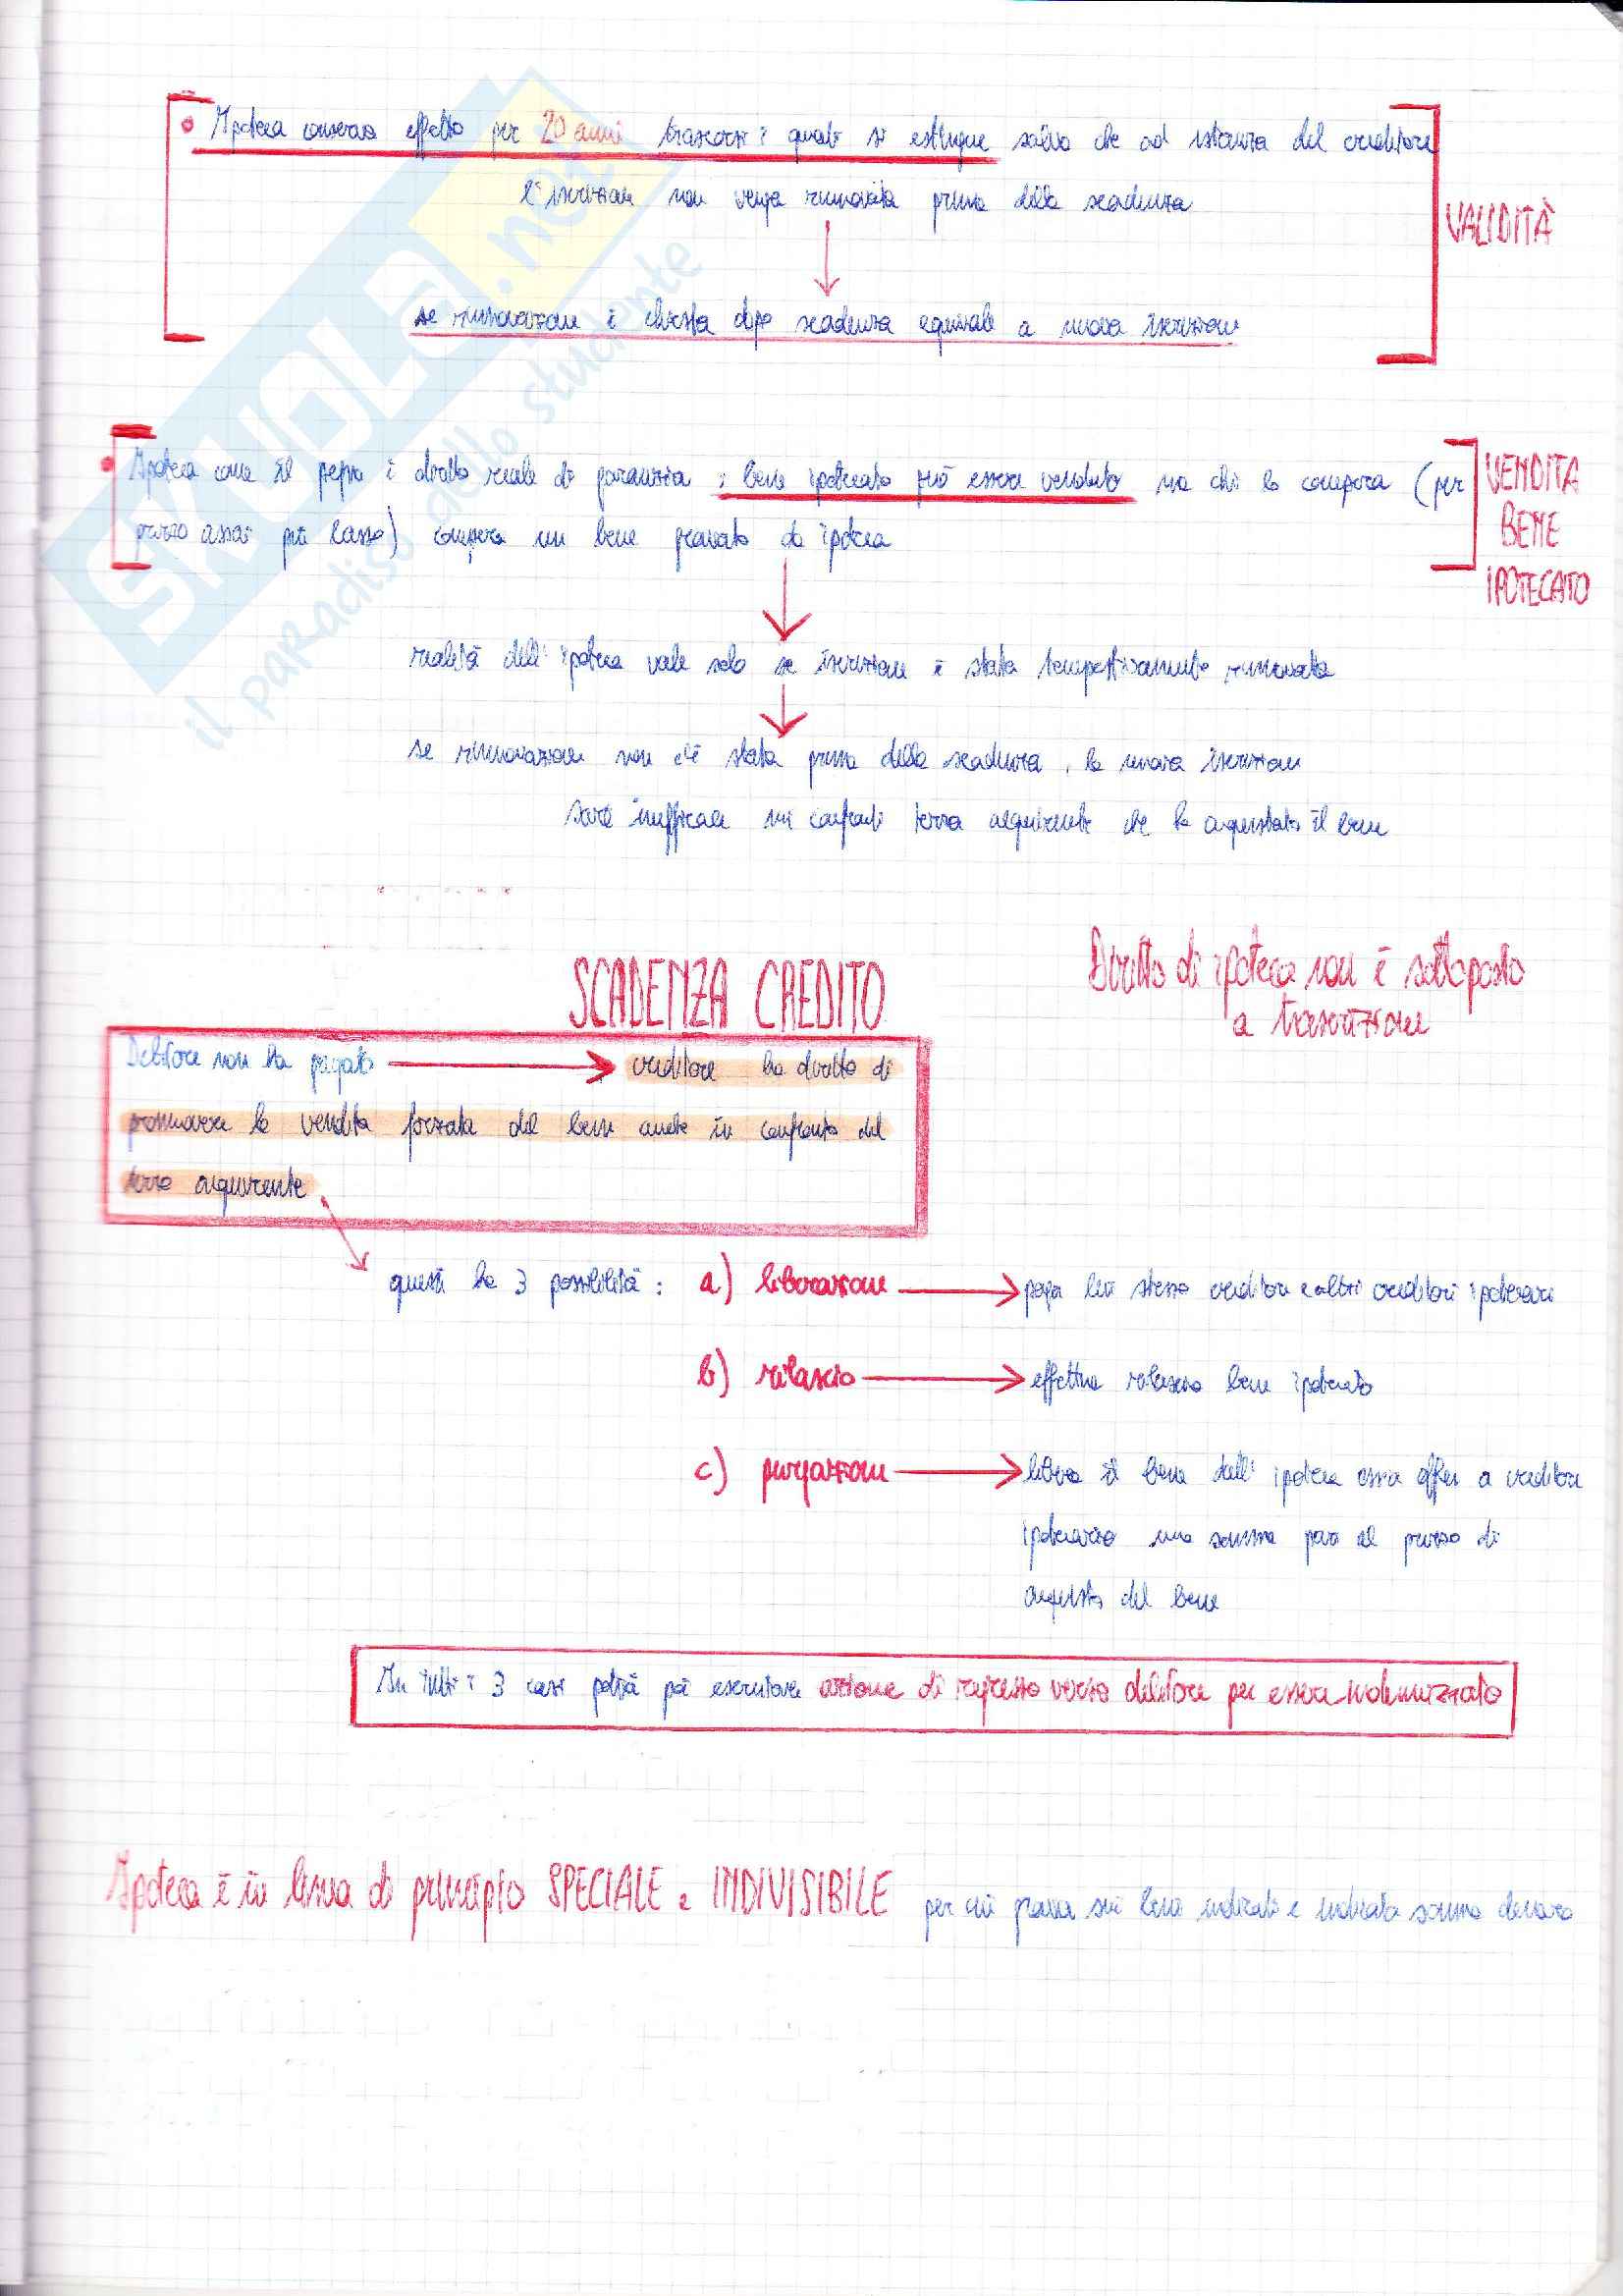 • Ipoteca conserva effetto per 20 anni trascorsi i quali si estingue salvo che ad istanza del creditore
l'iscrizione non venga rinnovata prima della scadenza
VALIDITÀ
se rinnovazione è chiesta dopo scadenza equivale a nuova iscrizione
• Ipoteca come il pegno è diritto reale di garanzia : bene ipotecato può essere venduto ma chi lo compera (per
prezzo assai più basso) compera un bene gravato da ipoteca
VENDITA
BENE
IPOTECATO
realità dell'ipoteca vale solo se iscrizione è stata tempestivamente rinnovata
se rinnovazione non c'è stata prima della scadenza, la nuova iscrizione
sarà inefficace nei confronti terzo acquirente che ha acquistato il bene
SCADENZA CREDITO
Diritto di ipoteca non è sottoposto
a trascrizione
Debitore non ha pagato → creditore ha diritto di
promuovere la vendita forzata del bene anche in confronto del
terzo acquirente
questi ha 3 possibilità : a) liberazione → paga lui stesso creditore e altri creditori ipotecari
b) rilascio → effettua rilascio bene ipotecato
c) purgazione → libera il bene dall'ipoteca ossia offre a creditore
ipotecario una somma pari al prezzo di
acquisto del bene
In tutti i 3 casi potrà poi esercitare azione di regresso verso debitore per essere indennizzato
Ipoteca è in linea di principio SPECIALE e INDIVISIBILE per cui grava sui beni indicati e indicata somma denaro
SKUOLA.net
il paradiso dello studente